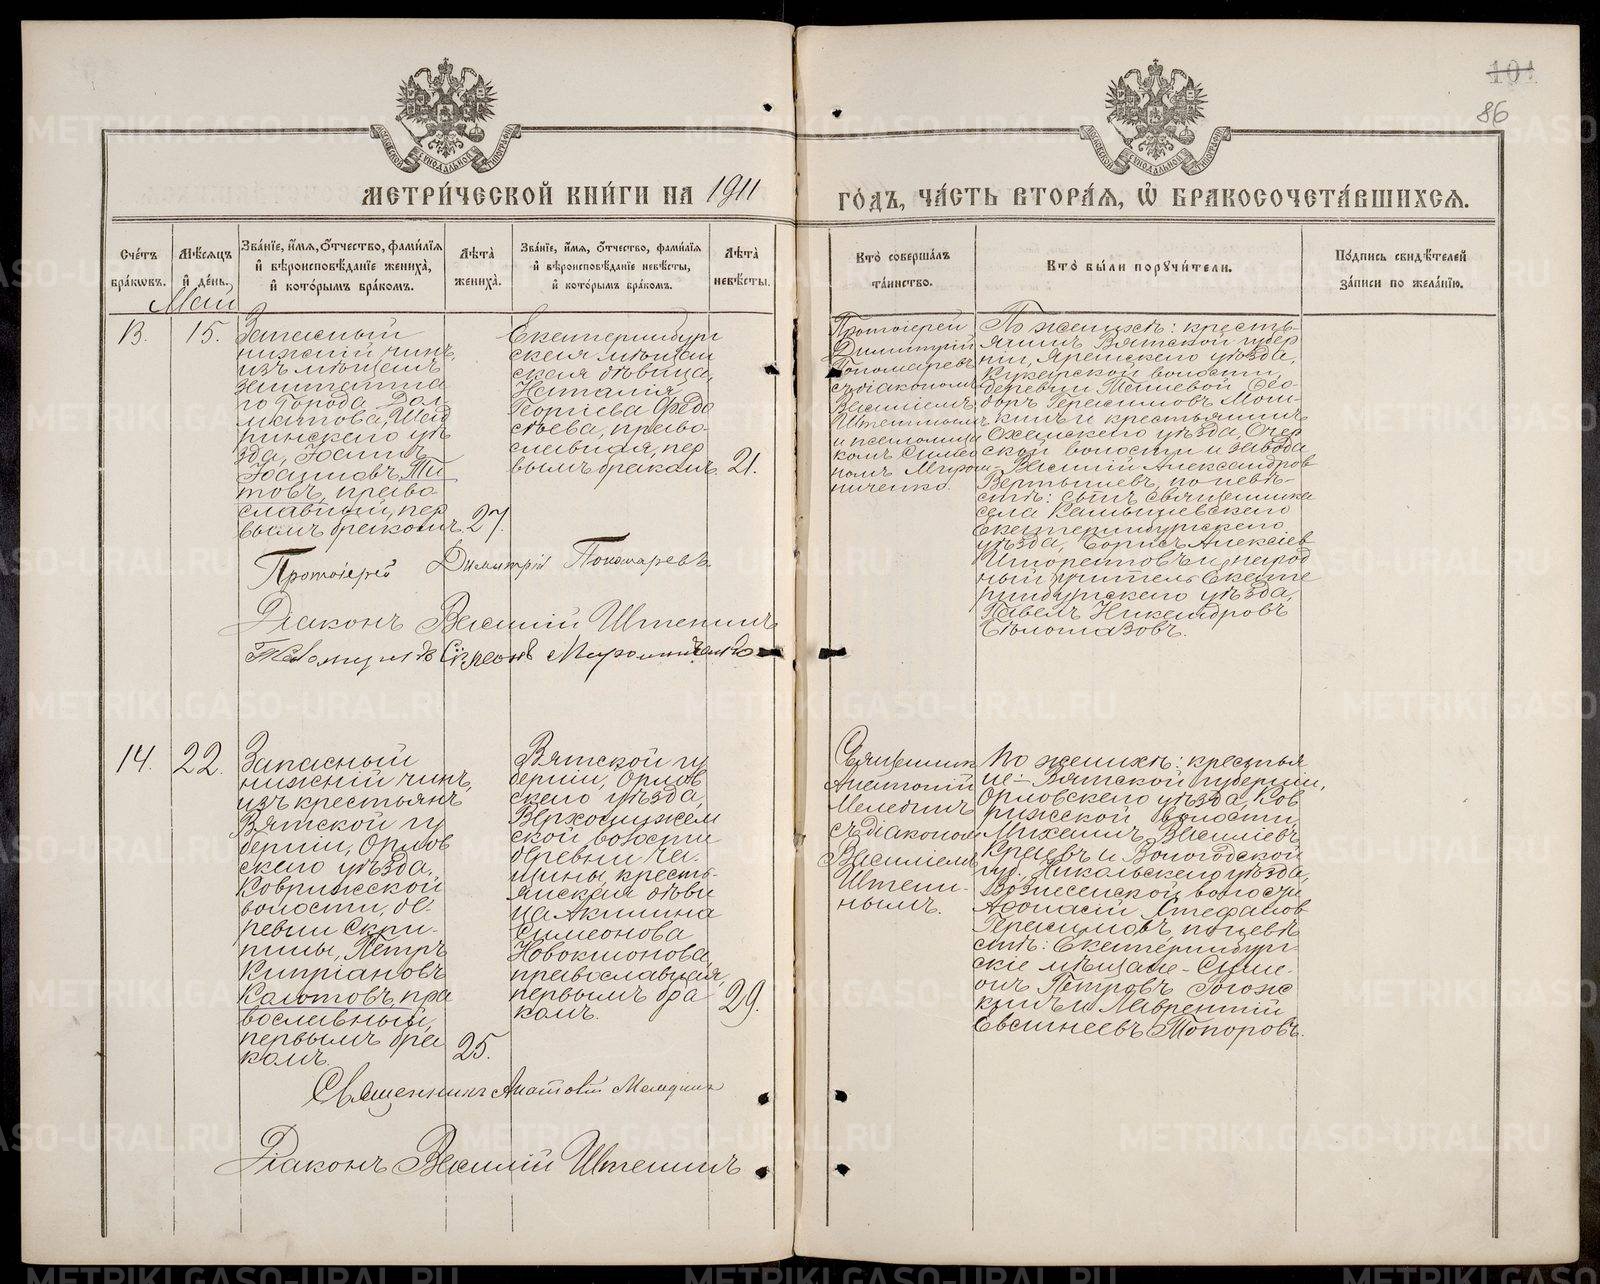 101
86
МОСКОВСКОЙ СУНОДАЛЬНОЙ ТИПОГРАФІИ
МОСКОВСКОЙ СУНОДАЛЬНОЙ ТИПОГРАФІИ
МЕТРИ́ЧЕСКОЙ КНИ́ГИ НА 1911
ГО́ДЪ, ЧА́СТЬ ВТОРА́Я, Ѽ БРАКОСОЧЕТА́ВШИХСЯ.
Сче́тъ бра́кѡвъ.
Мѣ́сяцъ и҆ де́нь.
Зва́нїе, и҆́мя, ѻ҆́тчество, фами́лїя
и҆ вѣроисповѣ́данїе жениха̀,
и҆ кото́рымъ бра́комъ.
Лѣ́та жениха̀.
Зва́нїе, и҆́мя, ѻ҆́тчество, фами́лїя
и҆ вѣроисповѣ́данїе невѣ́сты,
и҆ кото́рымъ бра́комъ.
Лѣ́та невѣ́сты.
Кто̀ соверша́лъ
та́инство.
Кто̀ бы́ли порꙋчи́тели.
По́дпись свидѣ́телей
за́писи по жела́нїю.
Май
13.
15.
Запасный
нижній чинъ,
изъ мѣщанъ
заштатна
го города Дол
матова, Шад
ринскаго уѣ
зда, Іоаннъ
Іоанновъ Ти
товъ, право
славный, пер
вымъ бракомъ.
27.
Екатеринбург
ская мѣщан
ская дѣвица,
Наталія
Георгіева Федо
сѣева, право
славная, пер
вымъ бракомъ.
21.
Протоіерей
Димитрій
Пономаревъ
съ діакономъ
Василіемъ
Штеннымъ
и псаломщи
комъ Симео
номъ Мирош
ниченко.
По женихѣ: кресть
янинъ Вятской губер
ніи, Яранскаго уѣзда,
Кукарской волости,
деревни Тоншевой, Ѳео
доръ Герасимовъ Мош
кинъ и крестьянинъ
Оханскаго уѣзда, Очер
ской волости и завода
Василій Александров
Вертышевъ, по невѣ-
стѣ: сынъ священника
села Камышевскаго
Екатеринбургскаго
уѣзда, Борисъ Алексѣев
Игнорантовъ и народ
ный учитель Екате
ринбургскаго уѣзда,
Павелъ Никандровъ
Бѣлоглазовъ.
Протоіерей Димитрій Пономаревъ.
Діаконъ Василій Штеннинъ
Псаломщикъ Симеонъ Мирошниченко.
14.
22.
Запасный
нижній чинъ,
изъ крестьянъ
Вятской гу
берніи, Орлов
скаго уѣзда,
Коврижской
волости, де-
ревни Скри-
пины, Петръ
Кипріановъ
Колотовъ, пра
вославный,
первымъ бра
комъ.
25.
Вятской гу
берніи, Орлов
скаго уѣзда,
Верхошижем
ской волости
деревни Ча-
щины, кресть-
янская дѣви
ца Акилина
Симеонова
Новокшонова,
православная,
первымъ бра
комъ.
29.
Священник
Анатолій
Мелединъ
съ діакономъ
Василіемъ
Штенни-
нымъ.
По женихѣ: крестья
не - Вятской губерніи,
Орловскаго уѣзда, Ков
рижской волости,
Михаилъ Василіевъ
Краевъ и Вологодской
губ., Никольскаго уѣзда,
Вознесенской волости
Аѳонасій Стефанов
Герасимовъ, по невѣ
стѣ: Екатеринбург
скіе мѣщане - Симе-
онъ Петровъ Рогож
кинъ и Лаврентій
Евсинеевъ Топоровъ.
Священникъ Анатолій Мелединъ
Діаконъ Василій Штеннинъ
METRIKI.GASO-URAL.RU